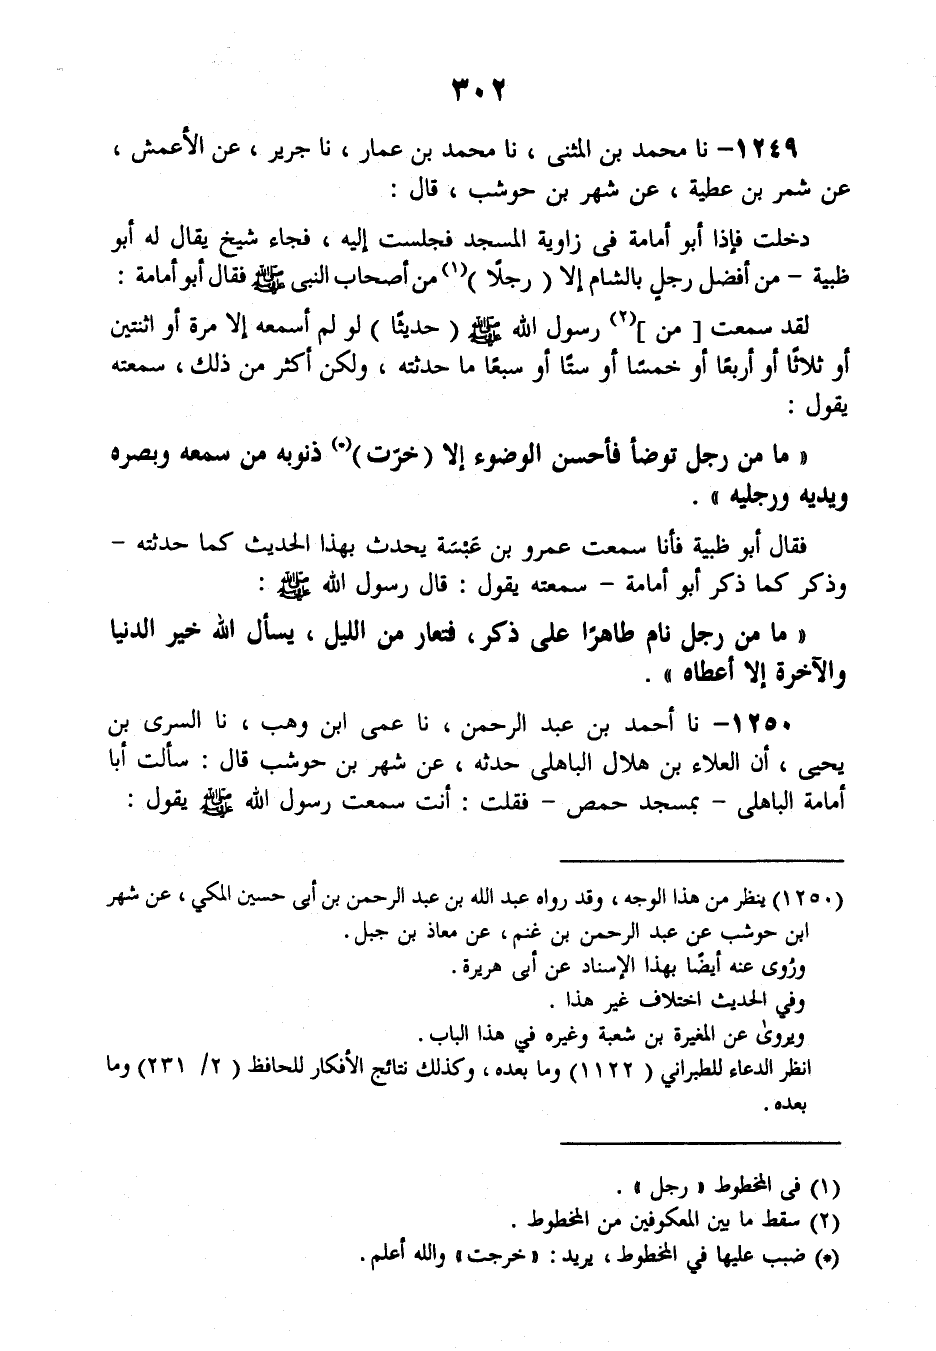 ٣٠٢
١٢٤٩- نا محمد بن المثنى ، نا محمد بن عمار ، نا جرير ، عن الأعمش ،
عن شمر بن عطية ، عن شهر بن حوشب ، قال :
دخلت فإذا أبو أمامة فى زاوية المسجد فجلست إليه ، فجاء شيخ يقال له أبو
ظبية - من أفضل رجلٍ بالشام إلا ( رجلًا )(١) من أصحاب النبى ﷺ فقال أبو أمامة :
لقد سمعت [ من ](٢) رسول الله ﷺ ( حديثًا ) لو لم أسمعه إلا مرة أو اثنتين
أو ثلاثًا أو أربعًا أو خمسًا أو ستًا أو سبعًا ما حدثته ، ولكن أكثر من ذلك ، سمعته
يقول :
« ما من رجل توضأ فأحسن الوضوء إلا (خرّت)(*) ذنوبه من سمعه وبصره
ويديه ورجليه » .
فقال أبو ظبية فأنا سمعت عمرو بن عَبْسَة يحدث بهذا الحديث كما حدثته -
وذكر كما ذكر أبو أمامة - سمعته يقول : قال رسول الله ﷺ :
« ما من رجل نام طاهرًا على ذكر ، فتعار من الليل ، يسأل الله خير الدنيا
والآخرة إلا أعطاه » .
١٢٥٠- نا أحمد بن عبد الرحمن ، نا عمى ابن وهب ، نا السرى بن
يحيى ، أن العلاء بن هلال الباهلى حدثه ، عن شهر بن حوشب قال : سألت أبا
أمامة الباهلى - بمسجد حمص - فقلت : أنت سمعت رسول الله ﷺ يقول :
(١٢٥٠) ينظر من هذا الوجه ، وقد رواه عبد الله بن عبد الرحمن بن أبى حسين المكي ، عن شهر
ابن حوشب عن عبد الرحمن بن غنم ، عن معاذ بن جبل .
ورُوى عنه أيضًا بهذا الإسناد عن أبى هريرة .
وفي الحديث اختلاف غير هذا .
ويروىٰ عن المغيرة بن شعبة وغيره في هذا الباب .
انظر الدعاء للطبراني ( ١١٢٢) وما بعده ، وكذلك نتائج الأفكار للحافظ ( ٢/ ٢٣١) وما
بعده .
(١) فى المخطوط « رجل » .
(٢) سقط ما بين المعكوفين من المخطوط .
(*) ضبب عليها في المخطوط ، يريد : «خرجت» والله أعلم .